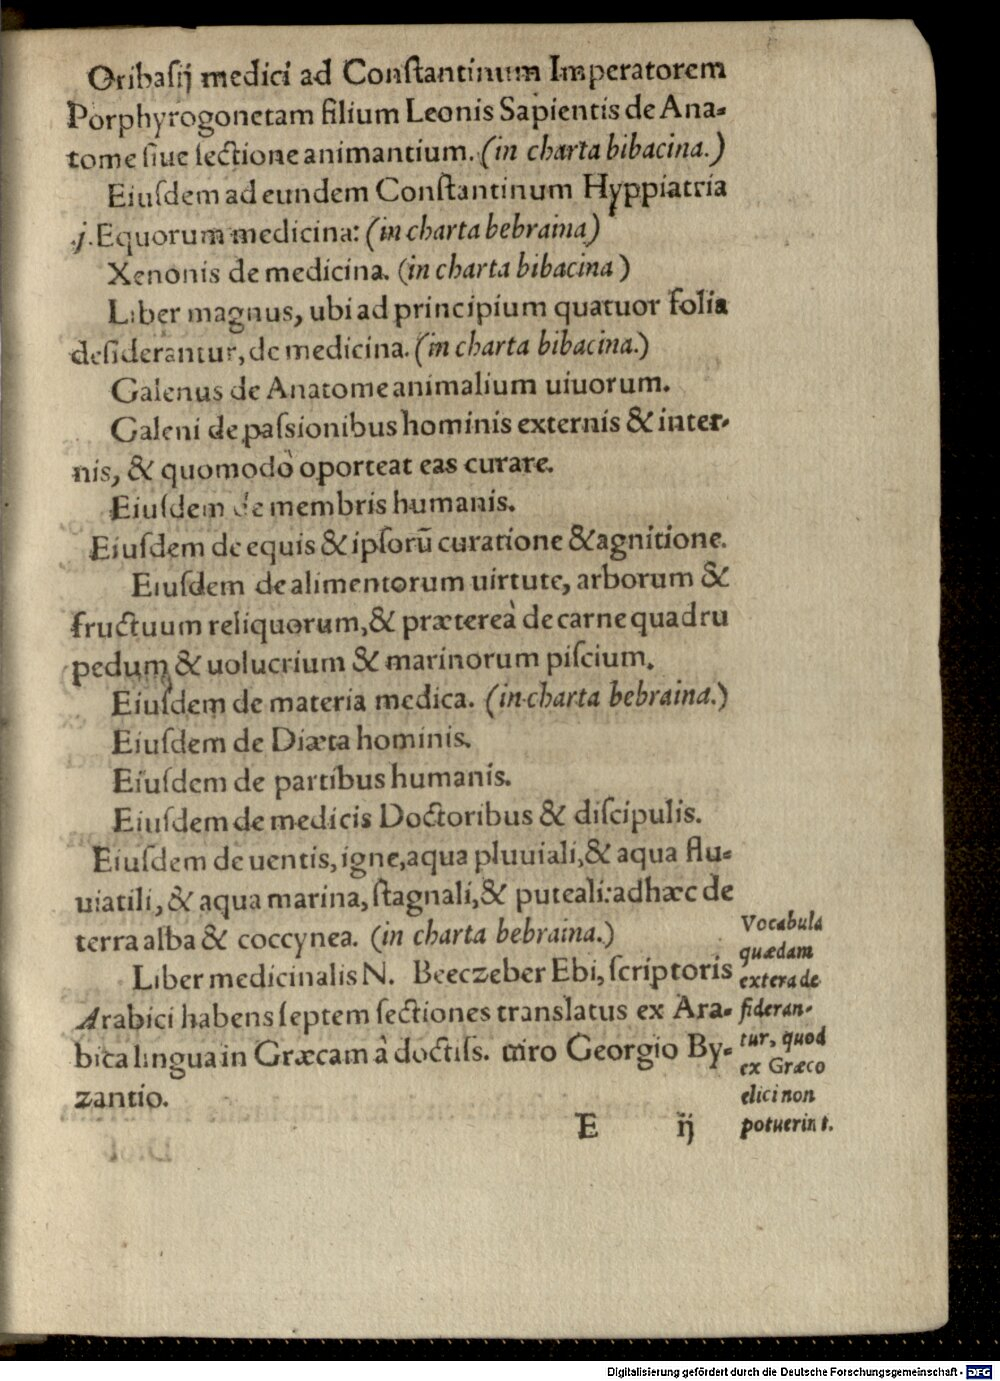 Oribasij medici ad Conſtantinum Imperatorem
Porphyrogonetam filium Leonis Sapientis de Ana-
tome ſiue ſectione animantium. (in charta bibacina.)
Eiuſdem ad eundem Conſtantinum Hyppiatria
.j. Equorum medicina: (in charta bebraina)
Xenonis de medicina. (in charta bibacina)
Liber magnus, ubi ad principium quatuor folia
deſiderantur, de medicina. (in charta bibacina.)
Galenus de Anatome animalium uiuorum.
Galeni de paſsionibus hominis externis & inter-
nis, & quomodò oporteat eas curare.
Eiuſdem de membris humanis.
Eiuſdem de equis & ipſorū curatione & agnitione.
Eiuſdem de alimentorum uirtute, arborum &
fructuum reliquorum, & prætereà de carne quadru
pedum & uolucrium & marinorum piſcium.
Eiuſdem de materia medica. (in charta bebraina.)
Eiuſdem de Diæta hominis.
Eiuſdem de partibus humanis.
Eiuſdem de medicis Doctoribus & diſcipulis.
Eiuſdem de uentis, igne, aqua pluuiali, & aqua flu-
uiatili, & aqua marina, ſtagnali, & puteali: adhæc de
terra alba & coccynea. (in charta bebraina.)
Liber medicinalis N. Beeczeber Ebi, ſcriptoris
Arabici habens ſeptem ſectiones translatus ex Ara-
bica lingua in Græcam à doctiſs. uiro Georgio By-
zantio.
Vocabula
quædam
extera de
ſideran-
tur, quod
ex Græco
elici non
potuerint.
E ij
Digitalisierung gefördert durch die Deutsche Forschungsgemeinschaft - DFG